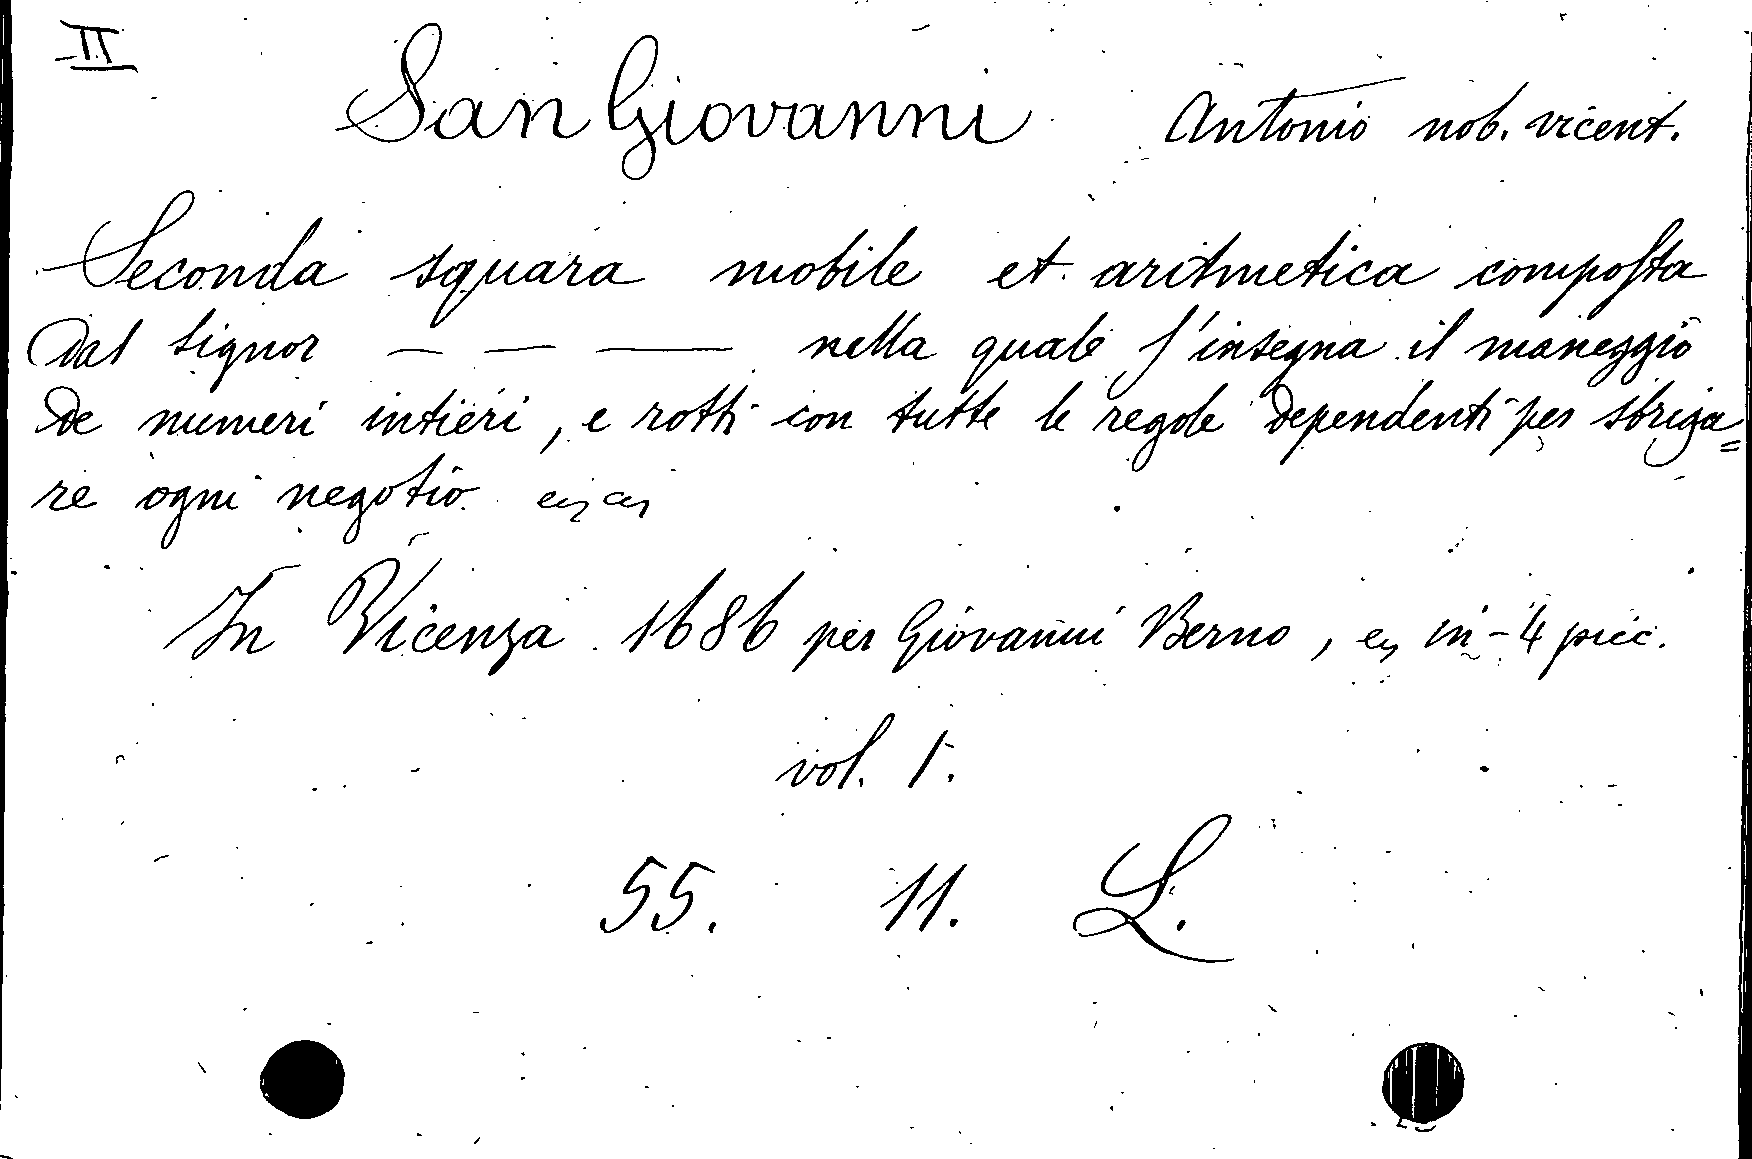 II
San Giovanni Antonio nob. vicent.
Seconda squara mobile et aritmetica composta
dal signor — — — nella quale s'insegna il maneggio
de numeri intieri, e rotti con tutte le regole dependenti per sbriga=
re ogni negotio.
In Vicenza 1686 per Giovanni Berno, in-4 picc.
vol. 1.
55. 11. L.